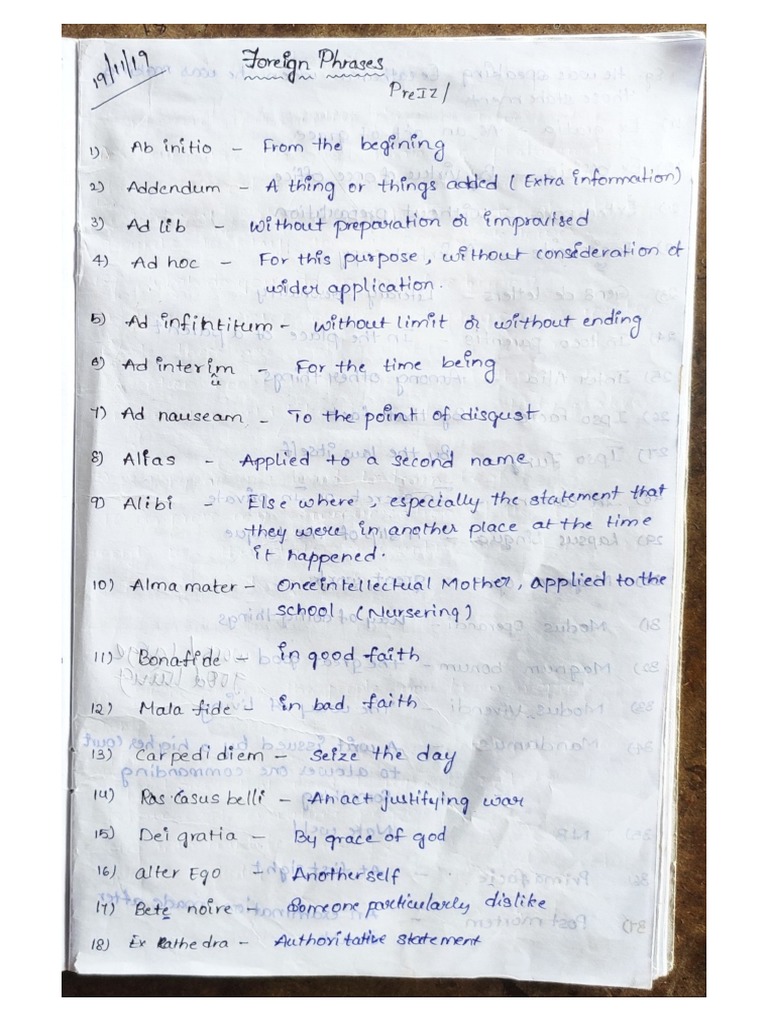 19/11/19
Foreign Phrases
1) Ab initio - From the begining
2) Addendum - A thing or things added (Extra information)
3) Ad lib - without preparation or improvised
4) Ad hoc - For this purpose, without consideration of
wider application.
5) Ad infintitum - without limit or without ending
6) Ad interim - For the time being
7) Ad nauseam - To the point of disgust
8) Alias - Applied to a second name
9) Alibi - Else where, especially the statement that
they were in another place at the time
it happened.
10) Alma mater - One intellectual Mother, applied to the
school (Nursering)
11) Bonafide - in good faith
12) Mala fide - in bad faith
13) Carpedi diem - seize the day
14) Ras casus belli - An act justifying war
15) Dei gratia - By grace of god
16) alter Ego - Another self
17) Bete noire - Someone particularly dislike
18) Ex athedra - Authoritative statement